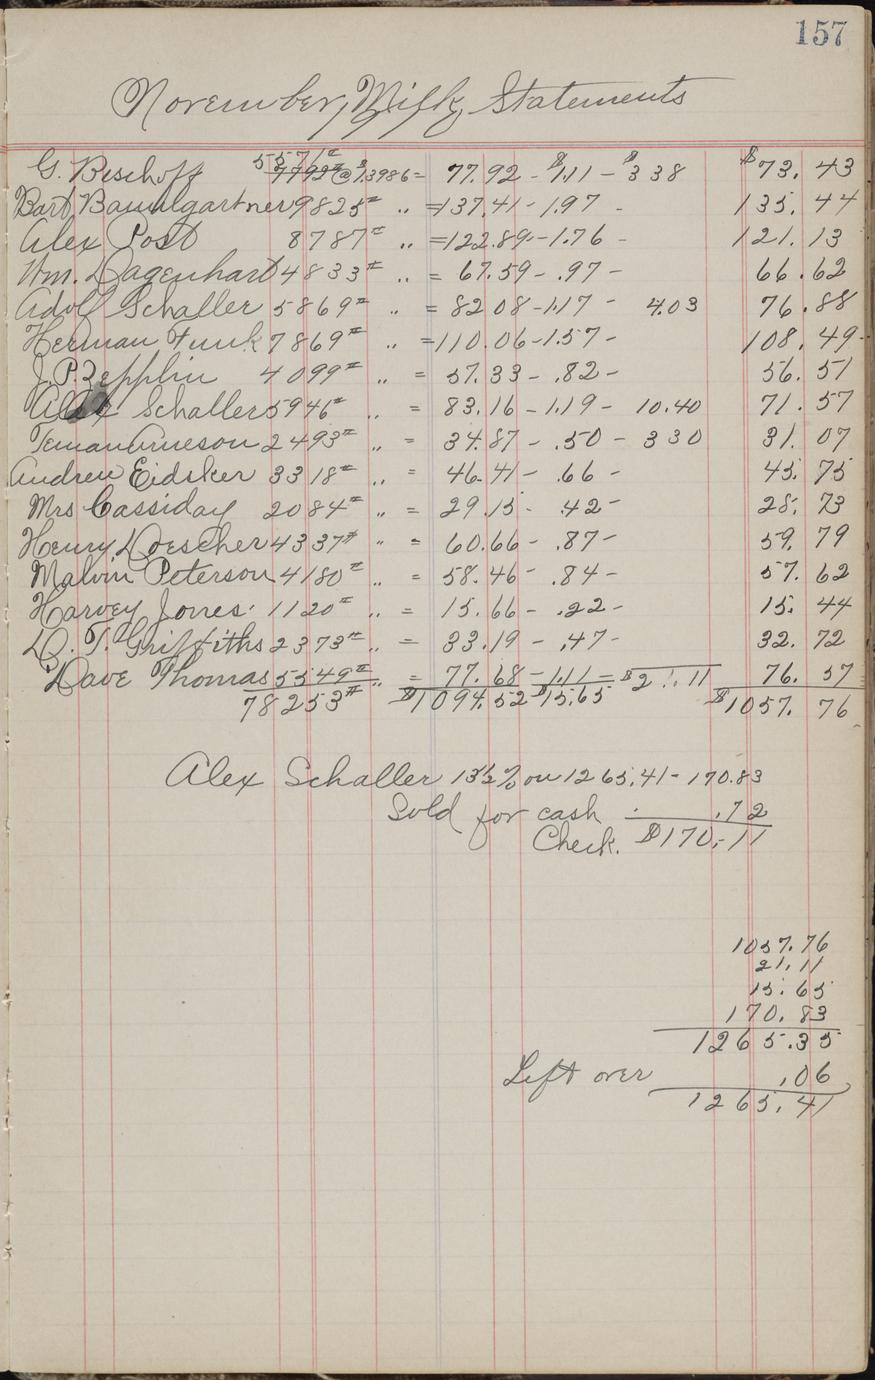 157
November, Milk Statements
G. Bischoff 5571# 7793# @ $1.3986 = 77.92 - $1.11 - $3 38 $73.43
Bart Baumgartner 9825# " = 137.41 - 1.97 - 135.44
Alex Post 8787# " = 122.89 - 1.76 - 121.13
Wm. Dagenhart 4833# " = 67.59 - .97 - 66.62
Adolf Schaller 5869# " = 82 08 - 1.17 - 4.03 76.88
Herman Funk 7869# " = 110.06 - 1.57 - 108.49
J. P. Zepplin 4099# " = 57.33 - .82 - 56.51
Alex Schaller 5946# " = 83.16 - 1.19 - 10.40 71.57
Arneson 2493# " = 34.87 - .50 - 3 30 31.07
Andrew Eidsker 3318# " = 46.41 - .66 - 45.75
Mrs Cassiday 2084# " = 29.15 - .42 - 28.73
Henry Doescher 4337# " = 60.66 - .87 - 59.79
Malvin Peterson 4180# " = 58.46 - .84 - 57.62
Harvey Jones 1120# " = 15.66 - .22 - 15.44
D. T. Griffiths 2373# " = 33.19 - .47 - 32.72
Dave Thomas 5549# " = 77.68 - 1.11 = $21.11 76.57
78253# $1094.52 $15.65 $1057.76
Alex Schaller 13½% on 1265.41 - 170.83
Sold for cash .72
Check. $170.11
1057.76
21.11
15.65
170.83
1265.35
Left over .06
1265.41